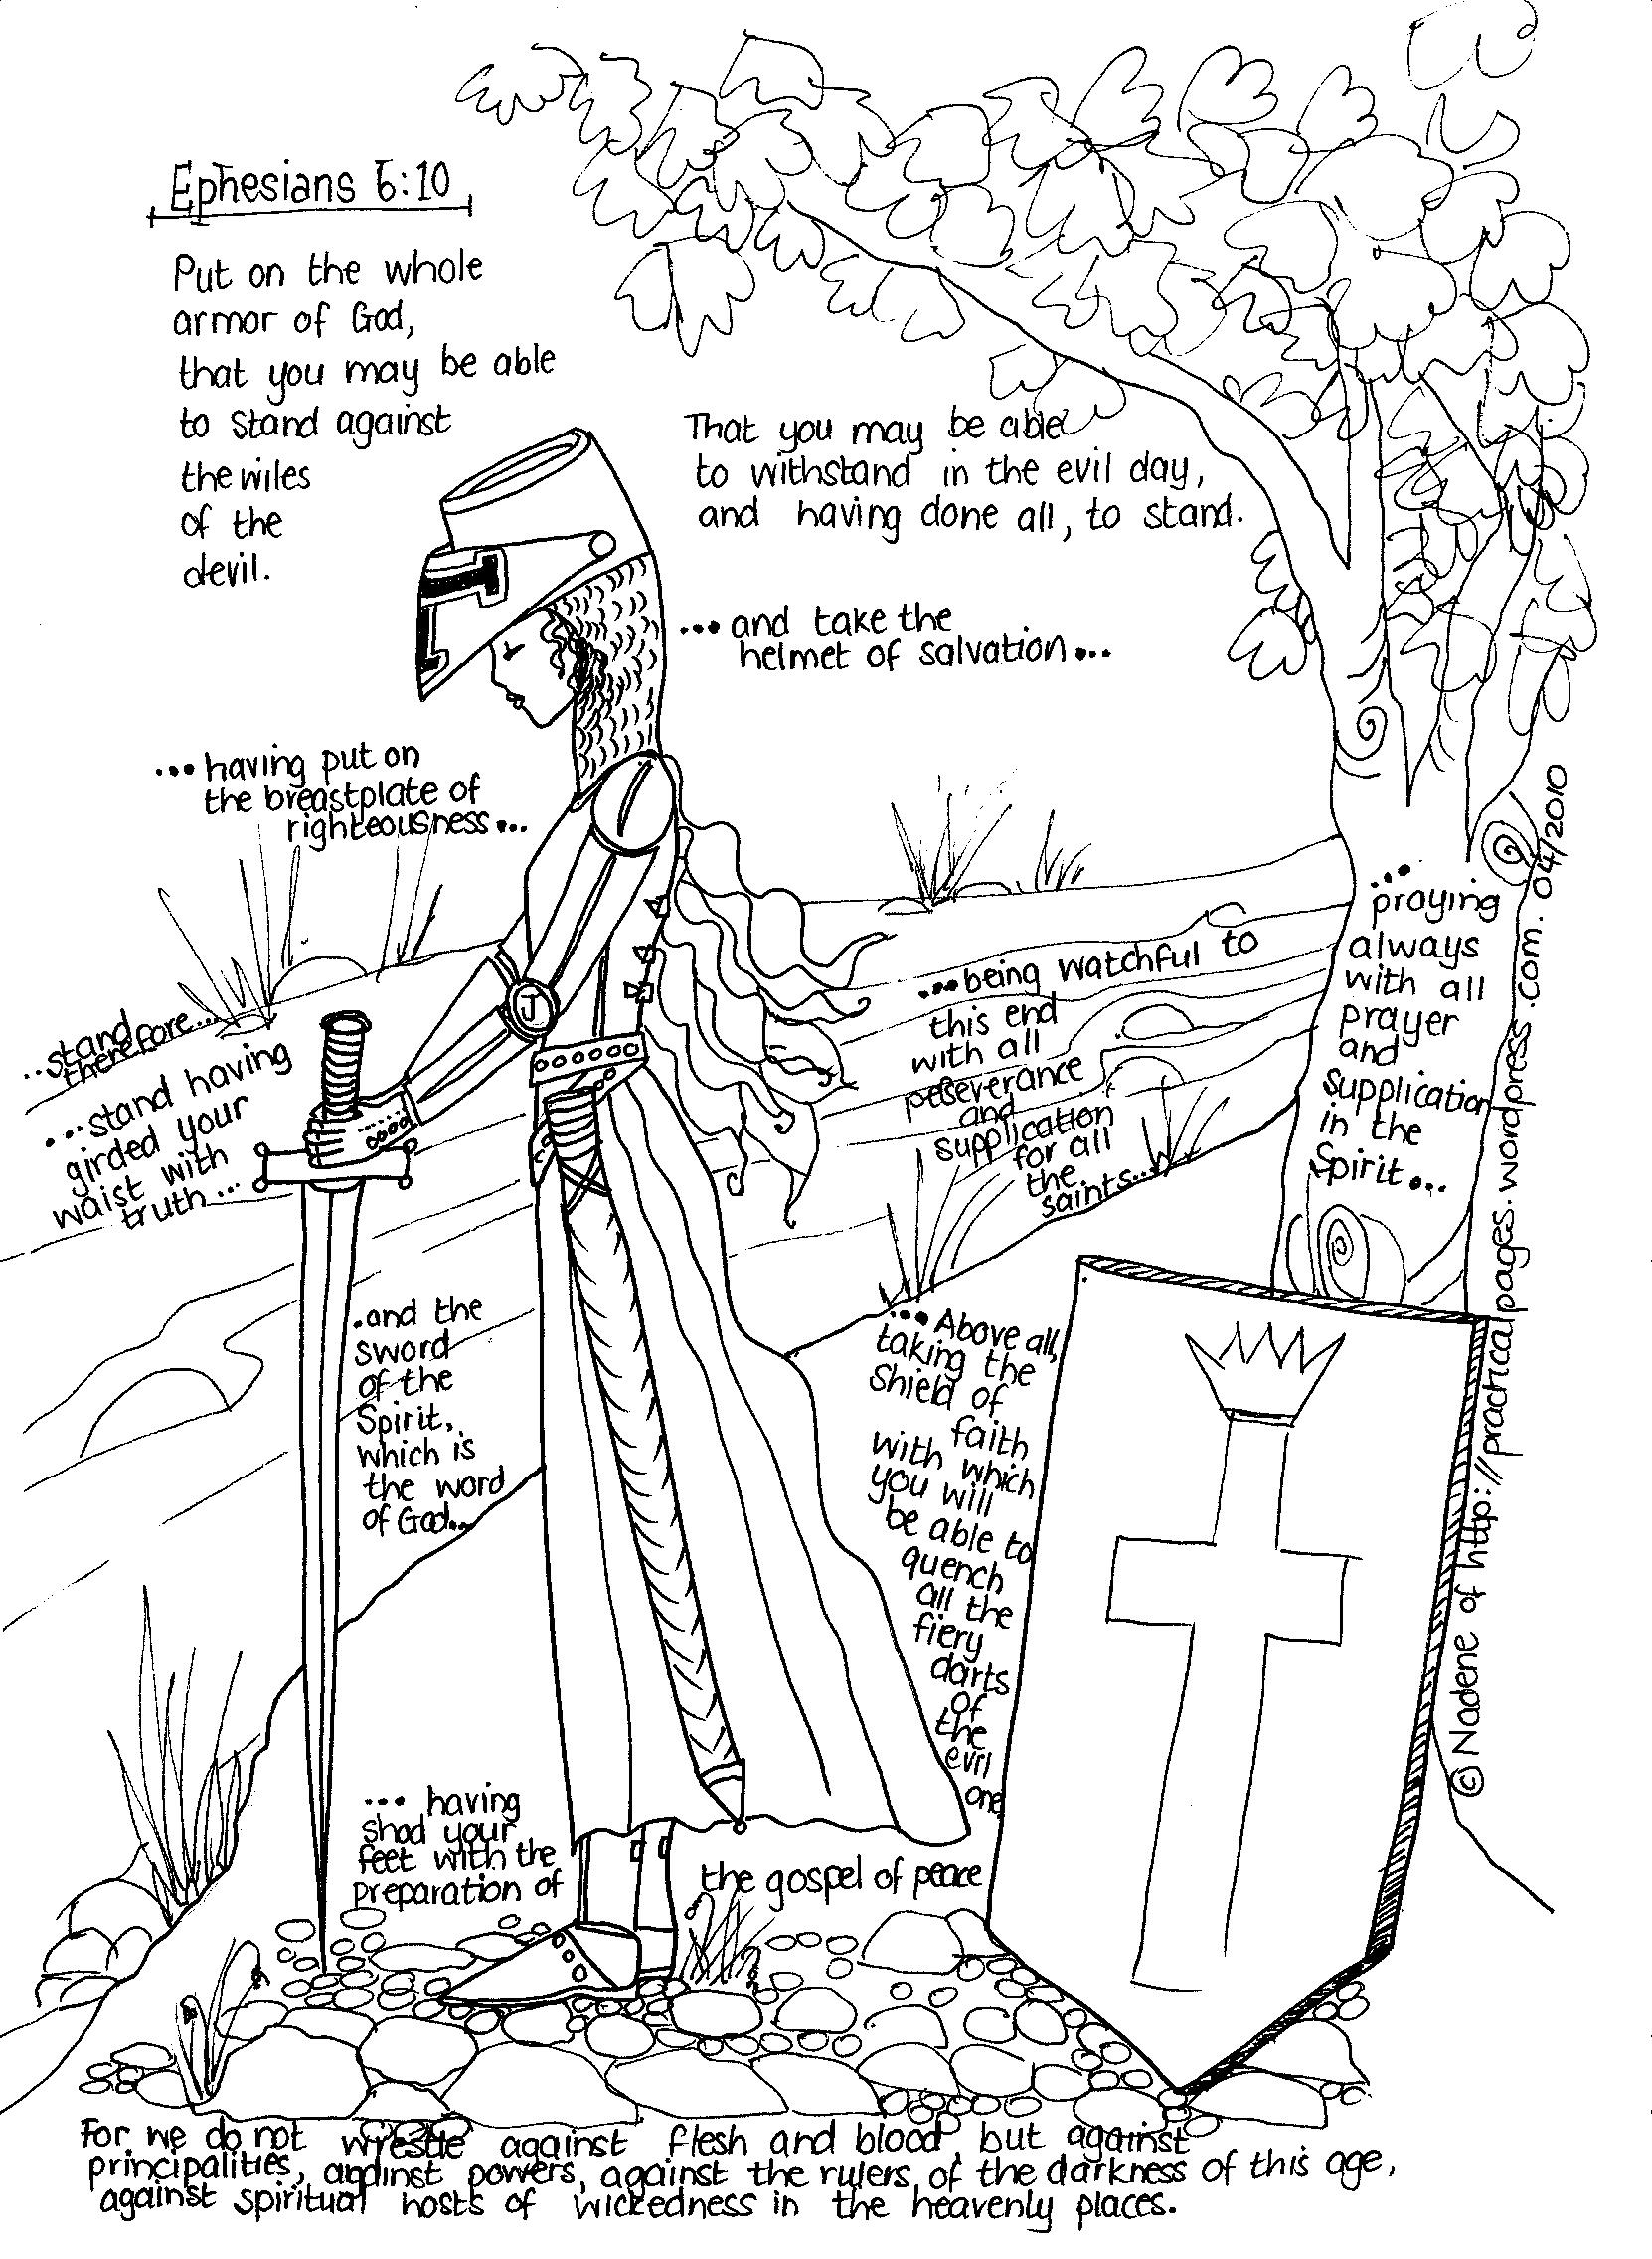 Ephesians 6:10
Put on the whole
armor of God,
that you may be able
to stand against
the wiles
of the
devil.
That you may be able
to withstand in the evil day,
and having done all, to stand.
...and take the
helmet of salvation...
...having put on
the breastplate of
righteousness...
..stand
therefore...
...stand having
girded your
waist with
truth...
...being watchful to
this end
with all
peseverance
and
supplication
for all
the
saints...
...
praying
always
with all
prayer
and
supplication
in the
Spirit...
.and the
sword
of the
Spirit,
which is
the word
of God..
...Above all,
taking the
shield of
faith
with which
you will
be able to
quench
all the
fiery
darts
of
the
evil
one
... having
shod your
feet with the
preparation of
the gospel of peace
J
© Nadene of http://practicalpages.wordpress.com. 04/2010
For we do not wrestle against flesh and blood, but against
principalities, against powers, against the rulers of the darkness of this age,
against spiritual hosts of wickedness in the heavenly places.